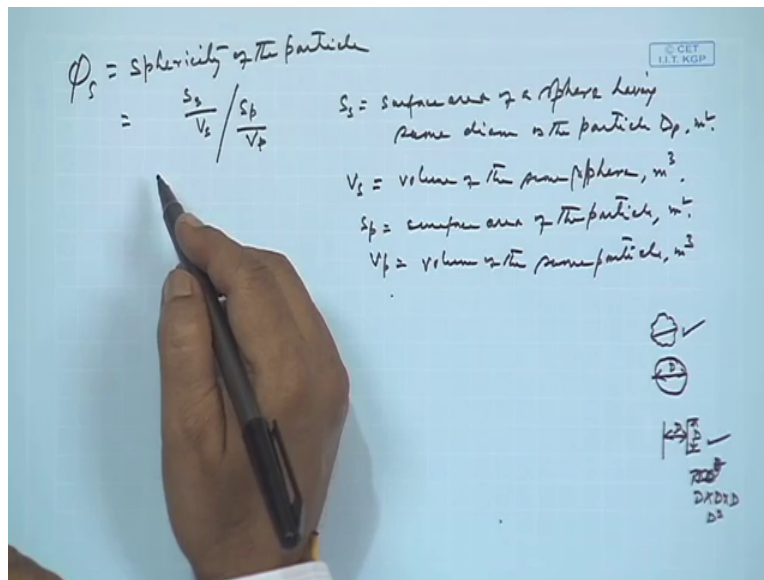 φs = sphericity of the particle
= Ss/Vs / Sp/Vp
© CET
I.I.T. KGP
Ss = surface area of a sphere having
same diam as the particle Dp, m².
Vs = volume of the same sphere, m³.
Sp = surface area of the particle, m².
Vp = volume of the same particle, m³
D
D
D
D×D×D
D³